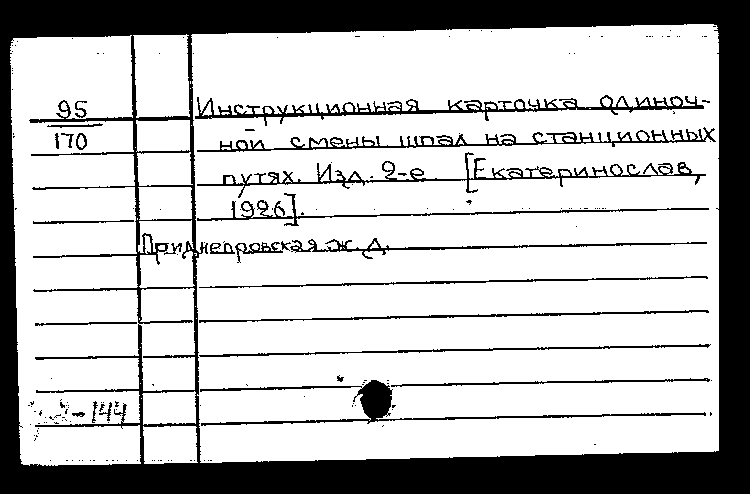 95
170
Инструкционная карточка одиноч-
ной смены шпал на станционных
путях. Изд. 2-е. [Екатеринослав,
1926].
Приднепровская ж. д.
-144